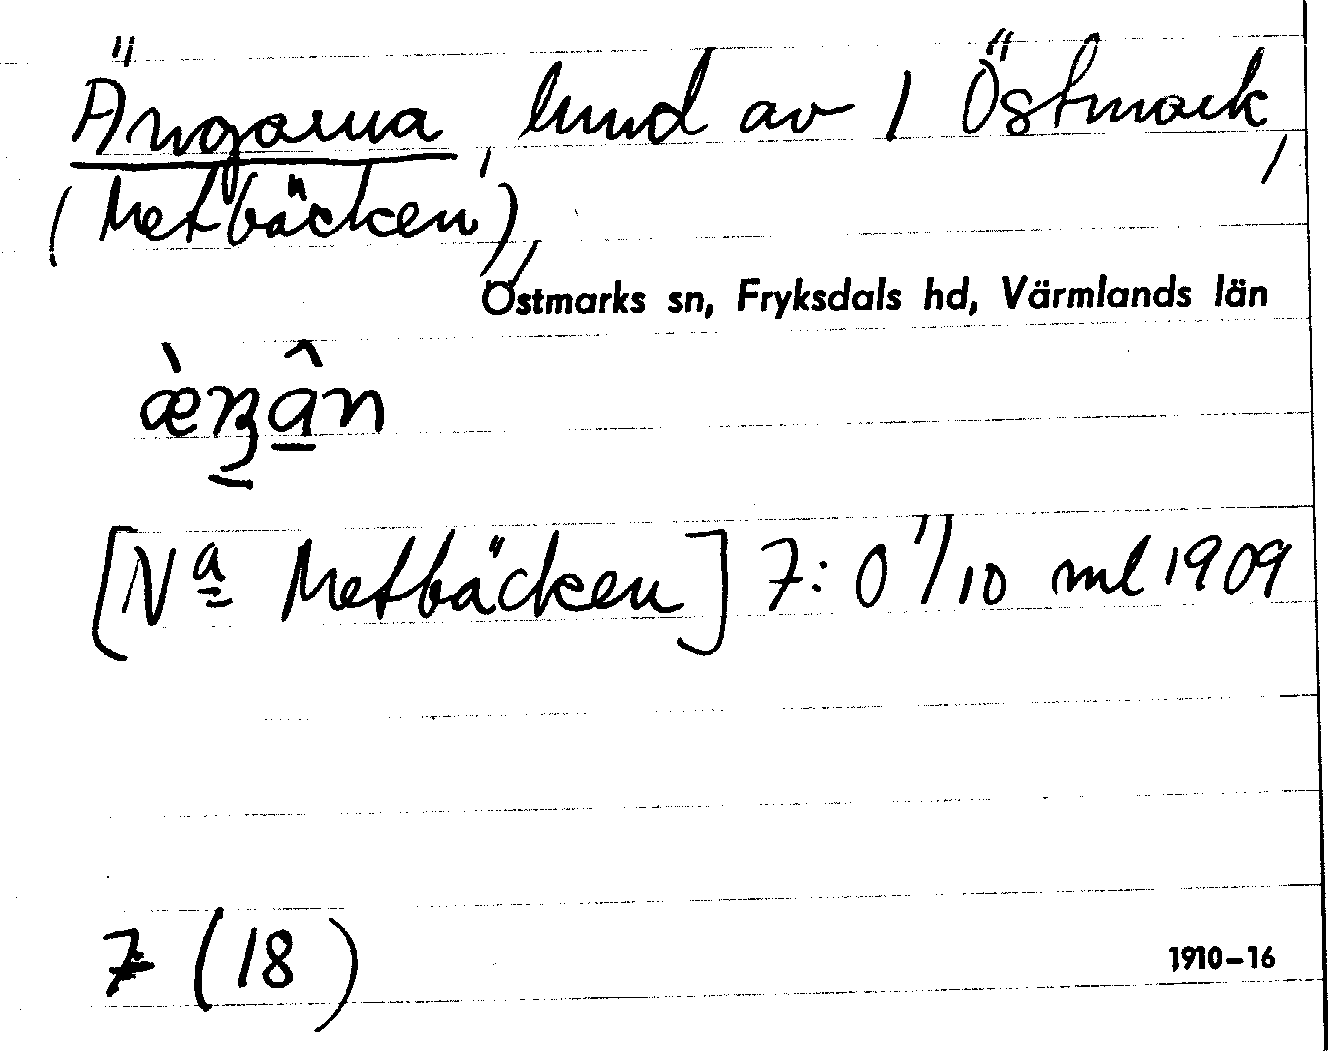 Ängarna, hmd av 1 Östmark,
(Metbäcken),
Östmarks sn, Fryksdals hd, Värmlands län
[Nª Metbäcken] 7: 0 1/10 ml 1909
7 (18) 1910–16